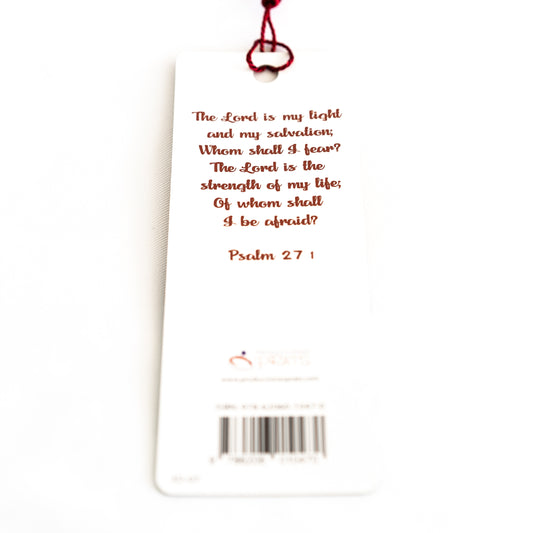 The Lord is my light
and my salvation;
Whom shall I fear?
The Lord is the
strength of my life;
Of whom shall
I be afraid?
Psalm 27 1